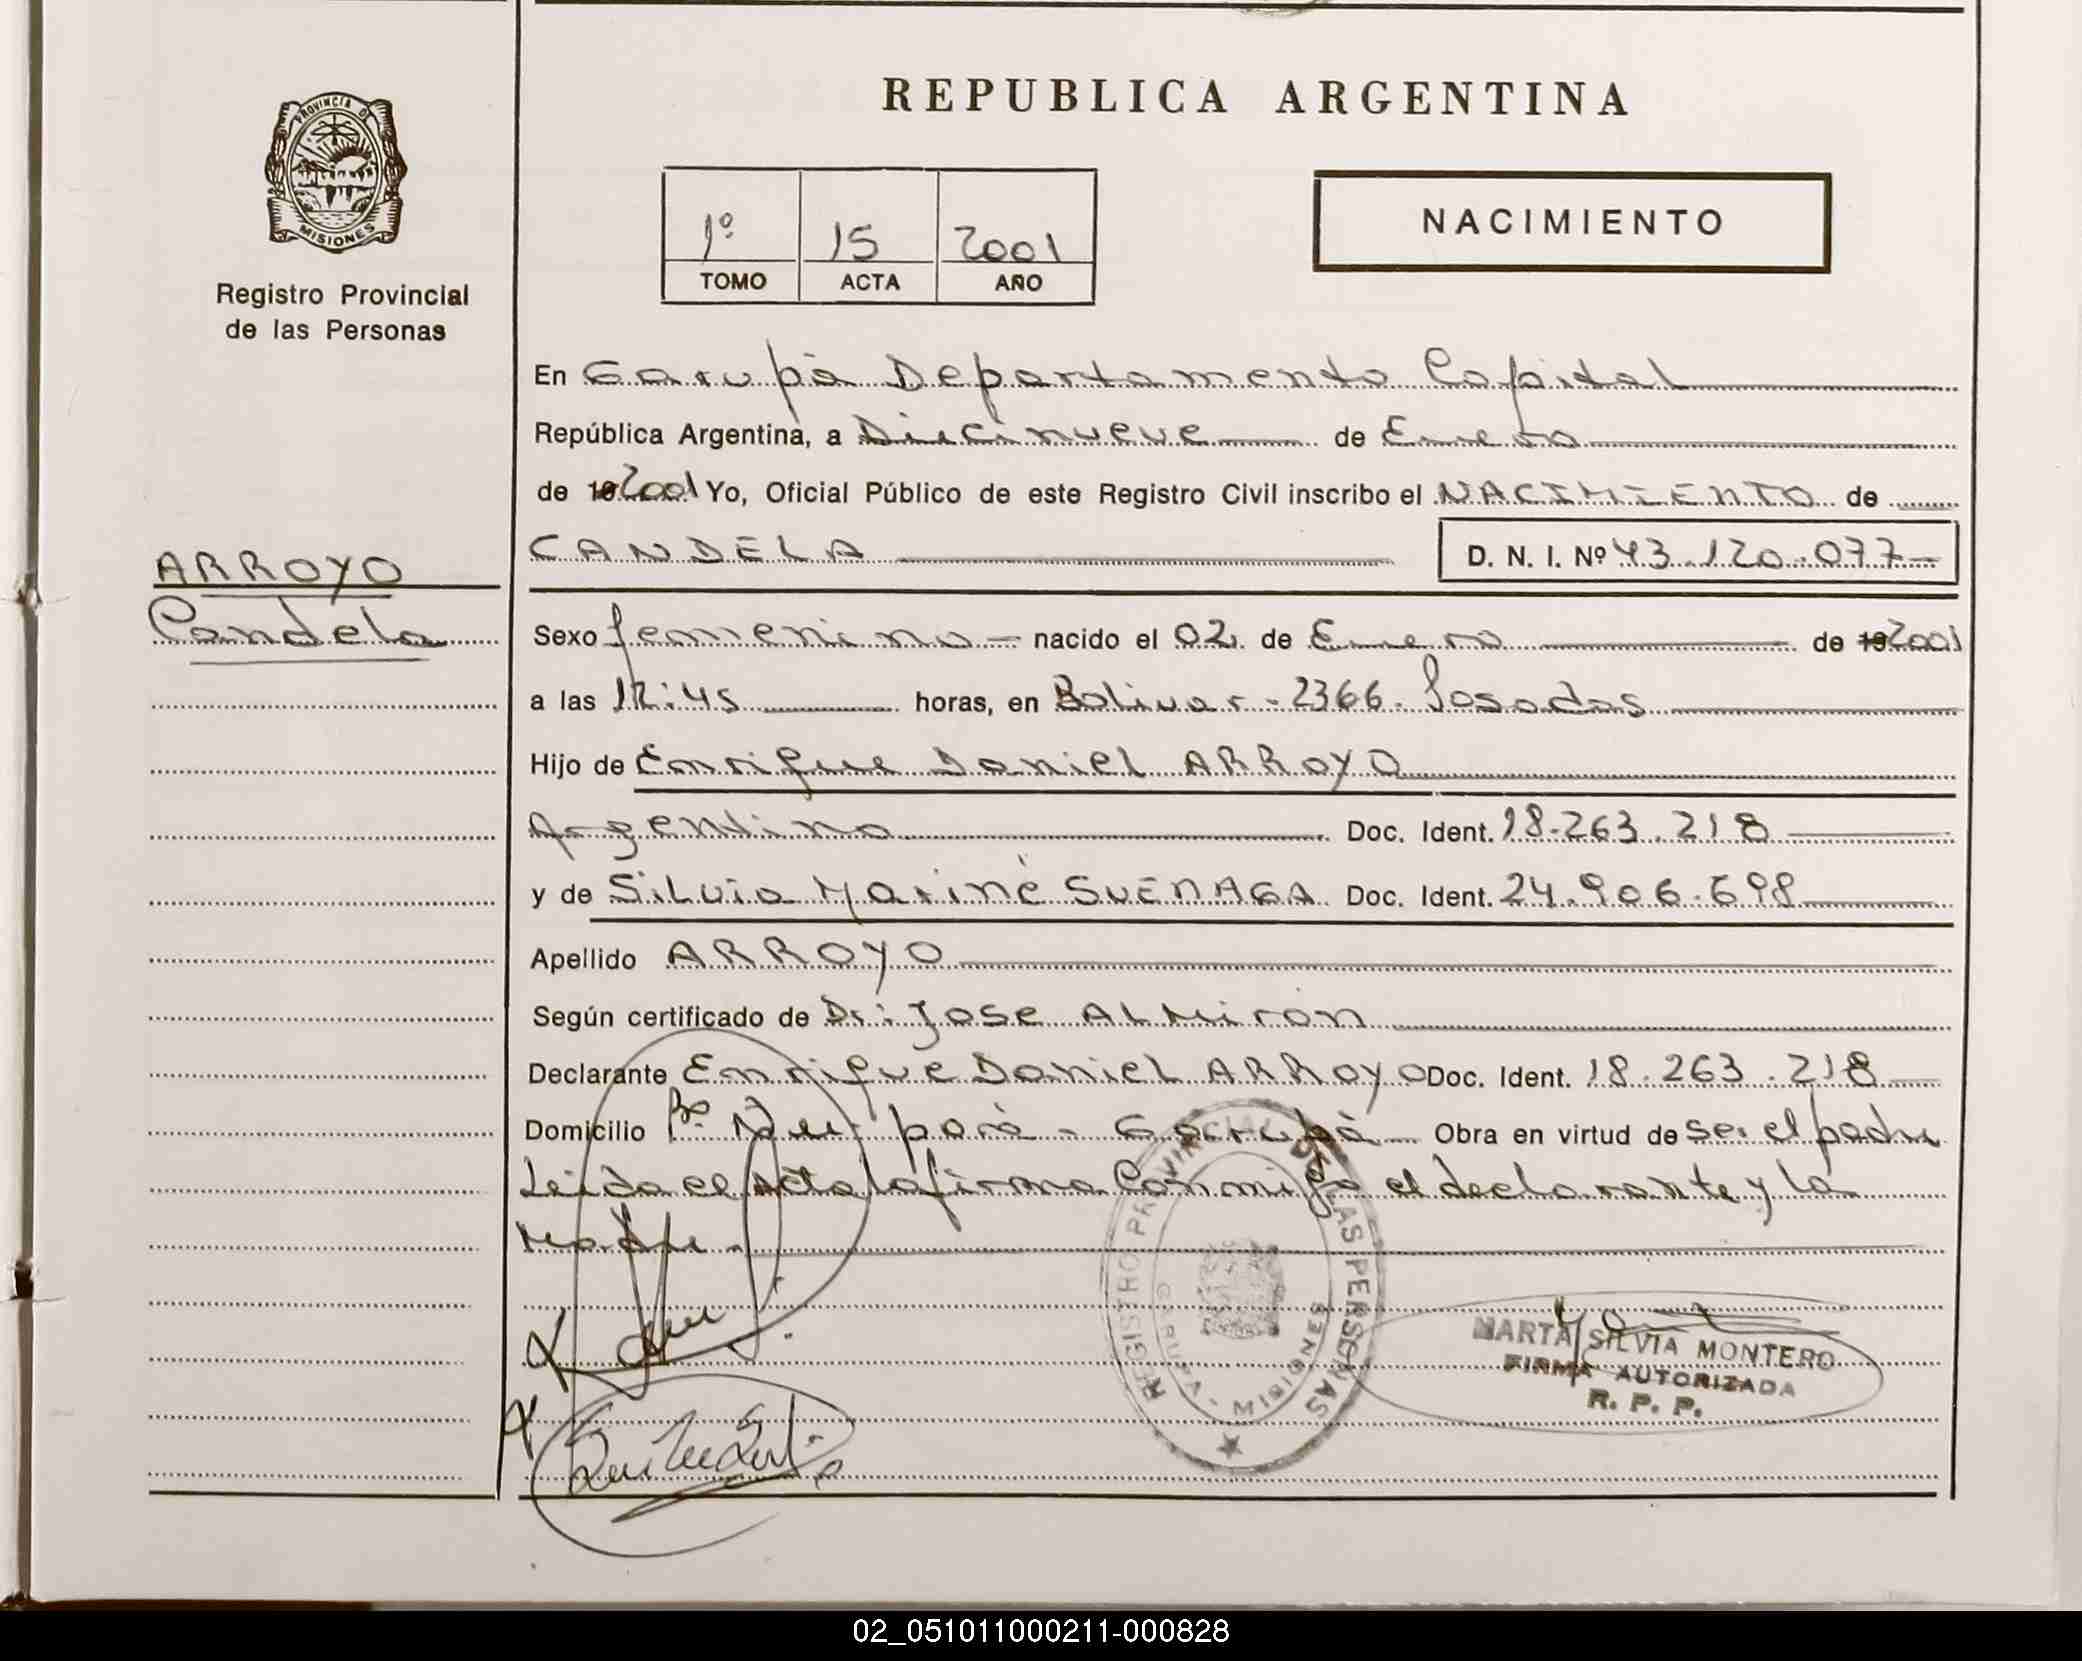 PROVINCIA DE
MISIONES
Registro Provincial
de las Personas
ARROYO
Candela
REPUBLICA ARGENTINA
1º 15 2001
TOMO ACTA AÑO
NACIMIENTO
En Garupá Departamento Capital
República Argentina, a Diecinueve de Enero
de 19 2001 Yo, Oficial Público de este Registro Civil inscribo el NACIMIENTO de
CANDELA D. N. I. Nº 43.120.077-
Sexo femenino nacido el 02 de Enero de 19 2001
a las 12:45 horas, en Bolivar - 2366. Posadas
Hijo de Enrique Daniel ARROYO
Argentino Doc. Ident. 18.263.218
y de Silvia Mariné SUENAGA Doc. Ident. 24.906.698
Apellido ARROYO
Según certificado de Dr: Jose ALMirón
Declarante Enrique Daniel ARROYO Doc. Ident. 18.263.218
Domicilio Bº Ñu porá - Garupá Obra en virtud de ser el padre
Leida el Acta la firma Conmigo el declarante y la
Madre.
REGISTRO PROVINCIAL DE LAS PERSONAS
GARUPA - MISIONES
MARTA SILVIA MONTERO
FIRMA AUTORIZADA
R. P. P.
02_051011000211-000828